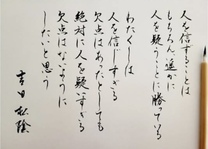 人を信ずることは
もちろん、遥かに
人を疑うことに勝っている
わたくしは
人を信じすぎる
欠点はあったとしても
絶対に人を疑いすぎる
欠点はないように
したいと思う
吉田 松陰